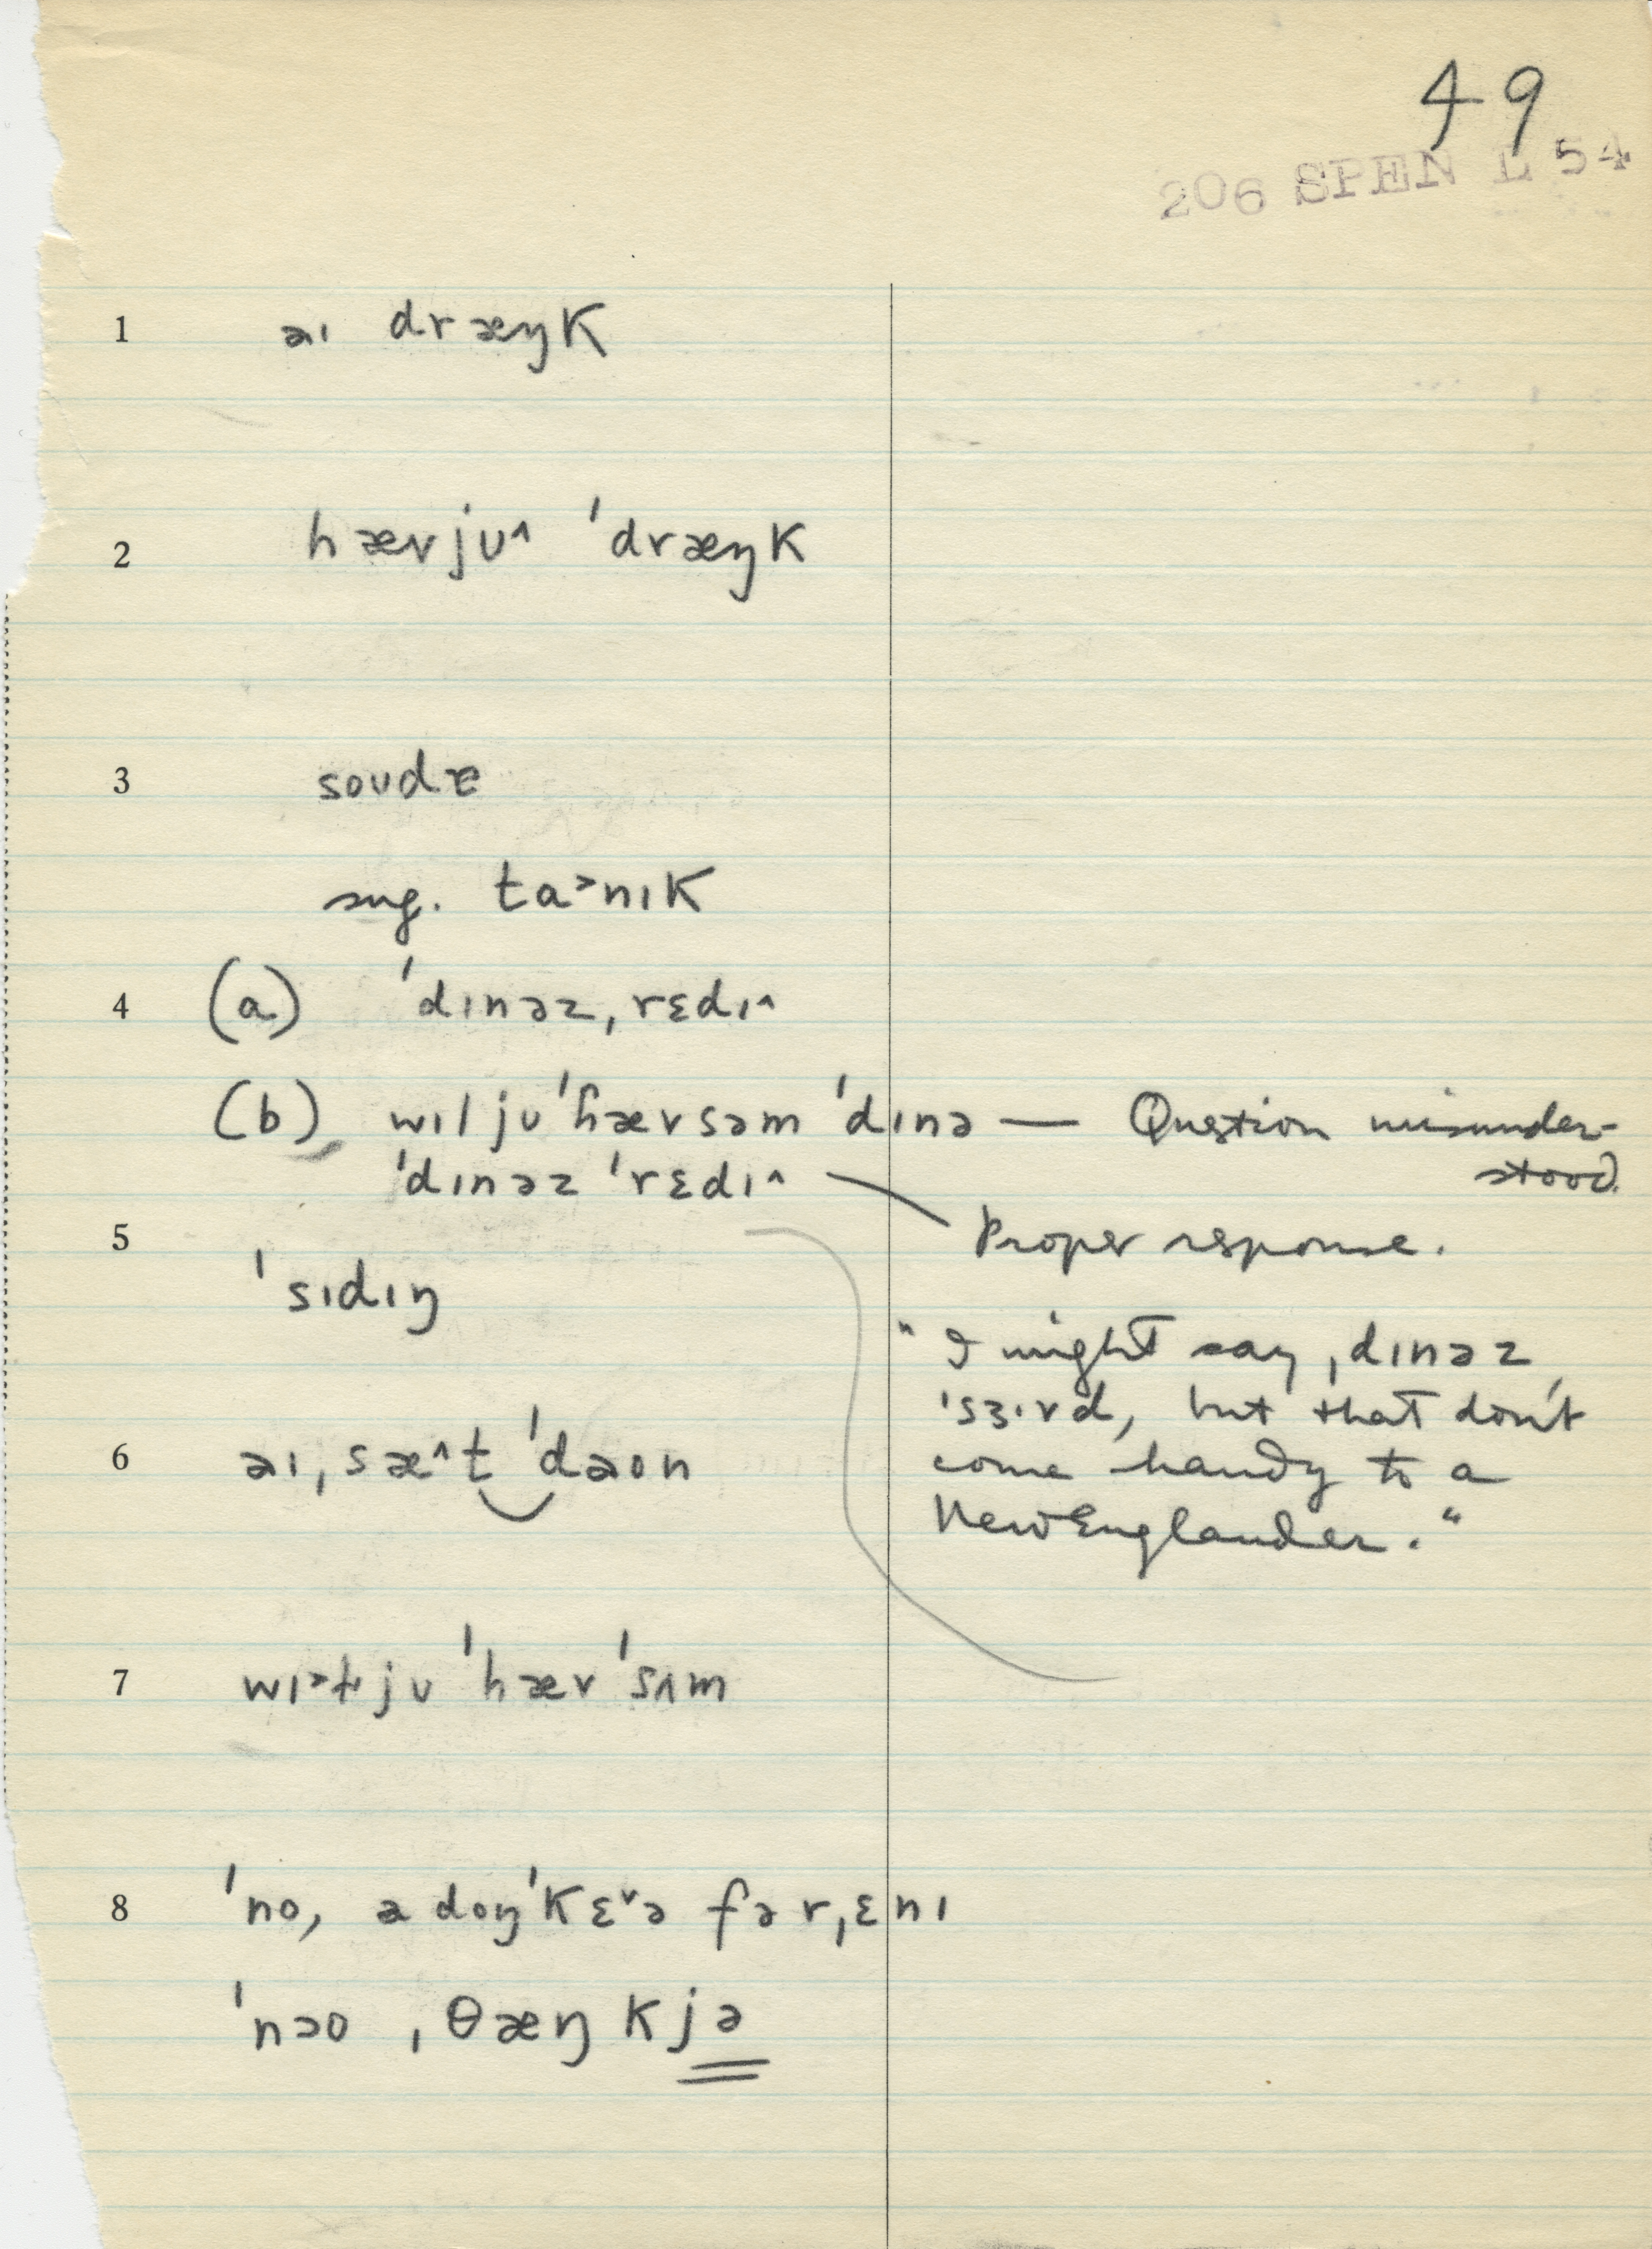 49
206 SPEN L 54
1 əɪ dræŋk
2 hævjʊ^ ˈdræŋk
3 soʊdə
sug. ta˃nɪk
4 (a) ˈdɪnəz ˌrɛdɪ^
(b) wɪljʊˈhævsəm ˈdɪnə — Question misunder-
stood.
ˈdɪnəz ˈrɛdɪ^
Proper response.
5 ˈsɪdɪŋ
"I might say ˌdɪnəz
ˈsɜ·vd, but that don't
come handy to a
New Englander."
6 əɪ ˌsæ^t ˈdəon
7 wɪ˃tjʊ ˈhæv ˈsʌm
8 ˈno, ə doŋˈkɛ˅ə fərˌɛnɪ
ˈnəo ˌθæŋkjə